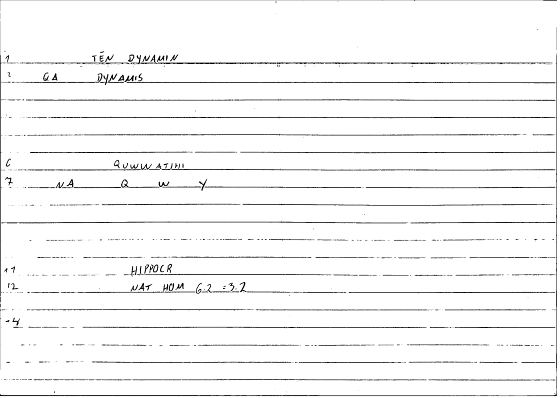 1 TĒN DYNAMIN
2 GA DYNAMIS
6 QUWWATIHI
7 NA Q W Y
11 HIPPOCR
12 NAT HOM 6.2 =3.2
-4